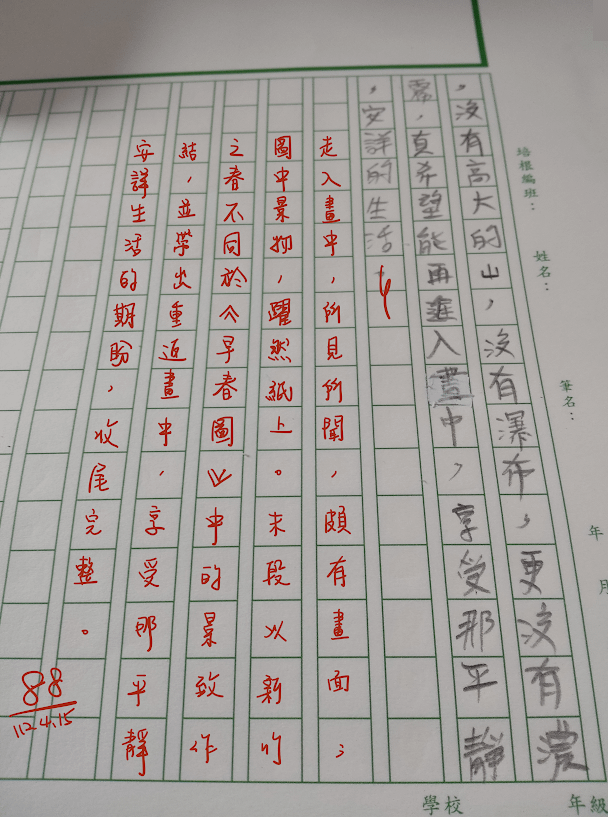 培根編班：
姓名：
筆名：
年
月
學校
年級
，沒有高大的山，沒有瀑布，更沒有濃
霧，真希望能再進入畫中，享受那平靜
，安詳的生活
走入畫中，所見所聞，頗有畫面；
圖中景物，躍然紙上。末段以新竹
之春不同於《早春圖》中的景致作
結，並帶出重返畫中，享受那平靜
安詳生活的期盼，收尾完整。
88
112.4.15